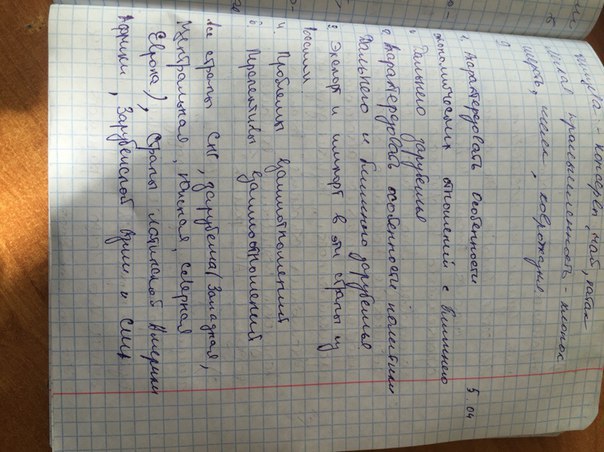 пищева - консервы, чай, табак
Лёгкая промышленность - хлопок
шерсть, шелк, ковроделие
5.04
1. Характердовать особенности
экономических отношений с ближнего
и Дальнего зарубежья
2. Характердовать особенности политики
Дальнего и ближнего зарубежья
3. Экспорт и импорт в эти страны из
России
4. Проблемы взаимоотношений
5 Перспективы взаимоотношений
Все страны СНГ, зарубежна (Западная,
Центральная, Южная, Северная
Европа), Страны Латинской Америки
Африки, Зарубежной Азии и США